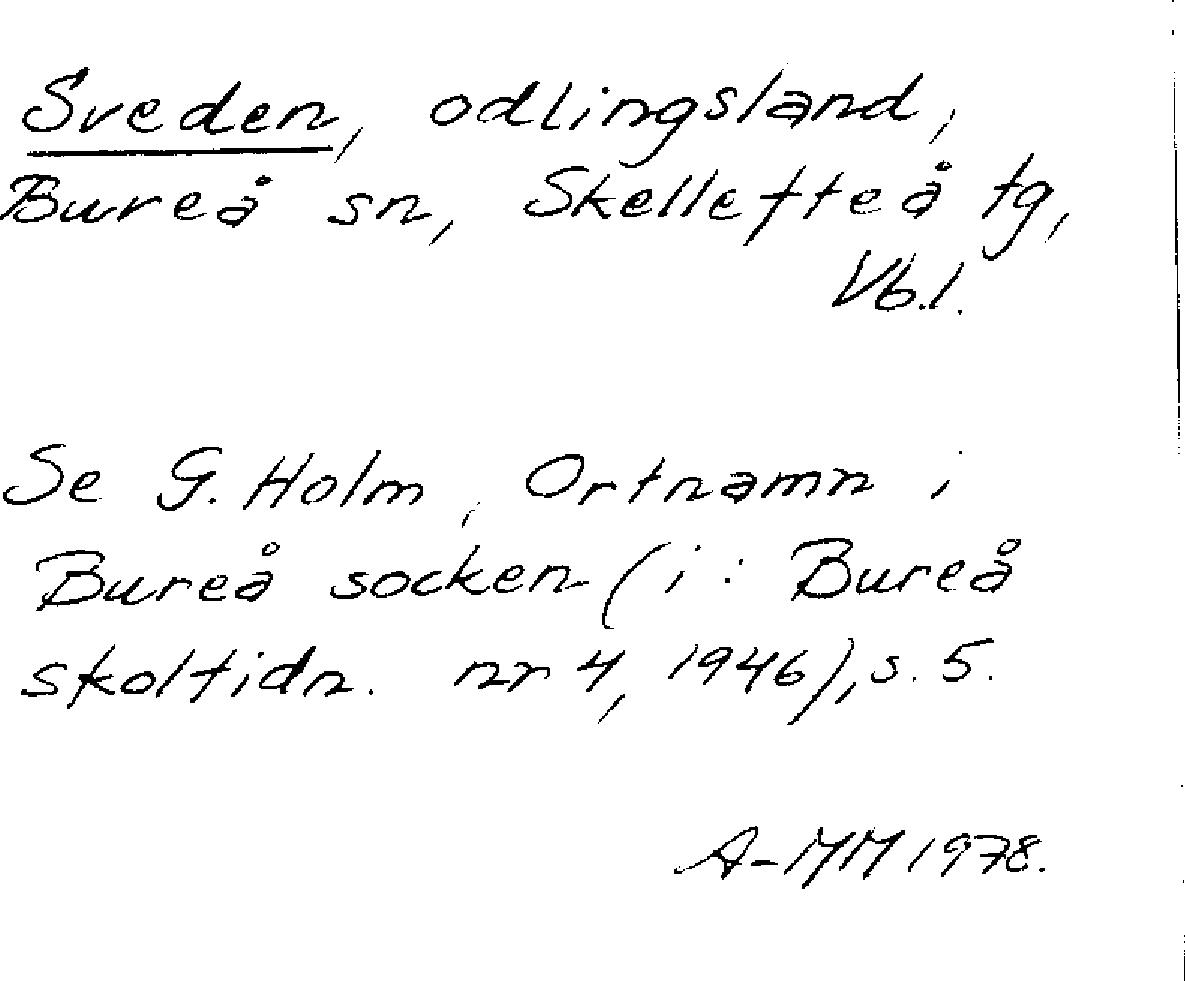 Sveden, odlingsland,
Bureå sn, Skellefteå tg,
Vb.l.
Se G. Holm, Ortnamn i
Bureå socken (i: Bureå
skoltidn. nr 4, 1946), s. 5.
A-MM 1978.